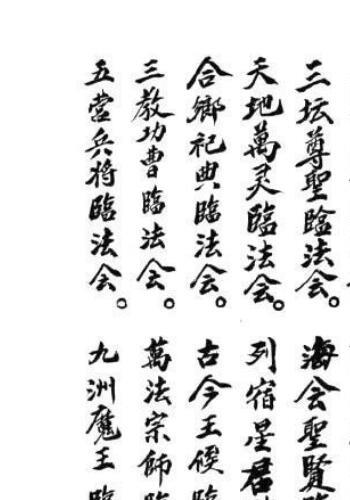 三坛尊聖臨法会。
天地萬灵臨法会。
合鄉祀典臨法会。
三教功曹臨法会。
五营兵将臨法会。
海会聖賢臨
列宿星君
古今王侯臨
萬法宗師臨
九洲魔王臨